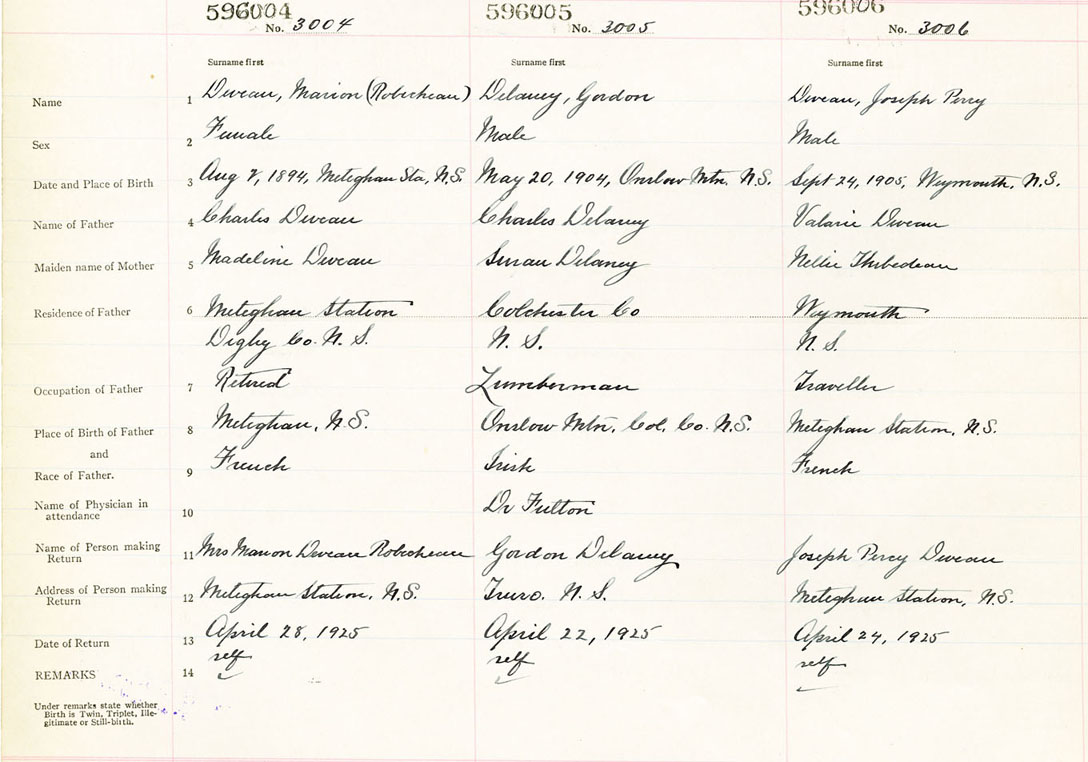 596004 596005 596006
No. 3004 No. 3005 No. 3006
Surname first Surname first Surname first
Name 1 Deveau, Marion (Robicheau) Delaney, Gordon Deveau, Joseph Percy
Sex 2 Female Male Male
Date and Place of Birth 3 Aug 8, 1894, Meteghan Sta, N.S. May 20, 1904, Onslow Mtn. N.S. Sept 24, 1905, Weymouth, N.S.
Name of Father 4 Charles Deveau Charles Delaney Valarie Deveau
Maiden name of Mother 5 Madeline Deveau Susan Delaney Nellie Thibedeau
Residence of Father 6 Meteghan Station Colchester Co Weymouth
Digby Co. N. S. N. S. N. S.
Occupation of Father 7 Retired Lumberman Traveller
Place of Birth of Father 8 Meteghan, N.S. Onslow Mtn, Col. Co. N.S. Meteghan Station, N.S.
and
Race of Father. 9 French Irish French
Name of Physician in
attendance 10 Dr Fulton
Name of Person making
Return 11 Mrs Marion Deveau Robicheau Gordon Delaney Joseph Percy Deveau
Address of Person making
Return 12 Meteghan Station, N.S. Truro. N. S. Meteghan Station, N.S.
Date of Return 13 April 28, 1925 April 22, 1925 April 24, 1925
self self self
REMARKS 14
Under remarks state whether
Birth is Twin, Triplet, Ille-
gitimate or Still-birth.